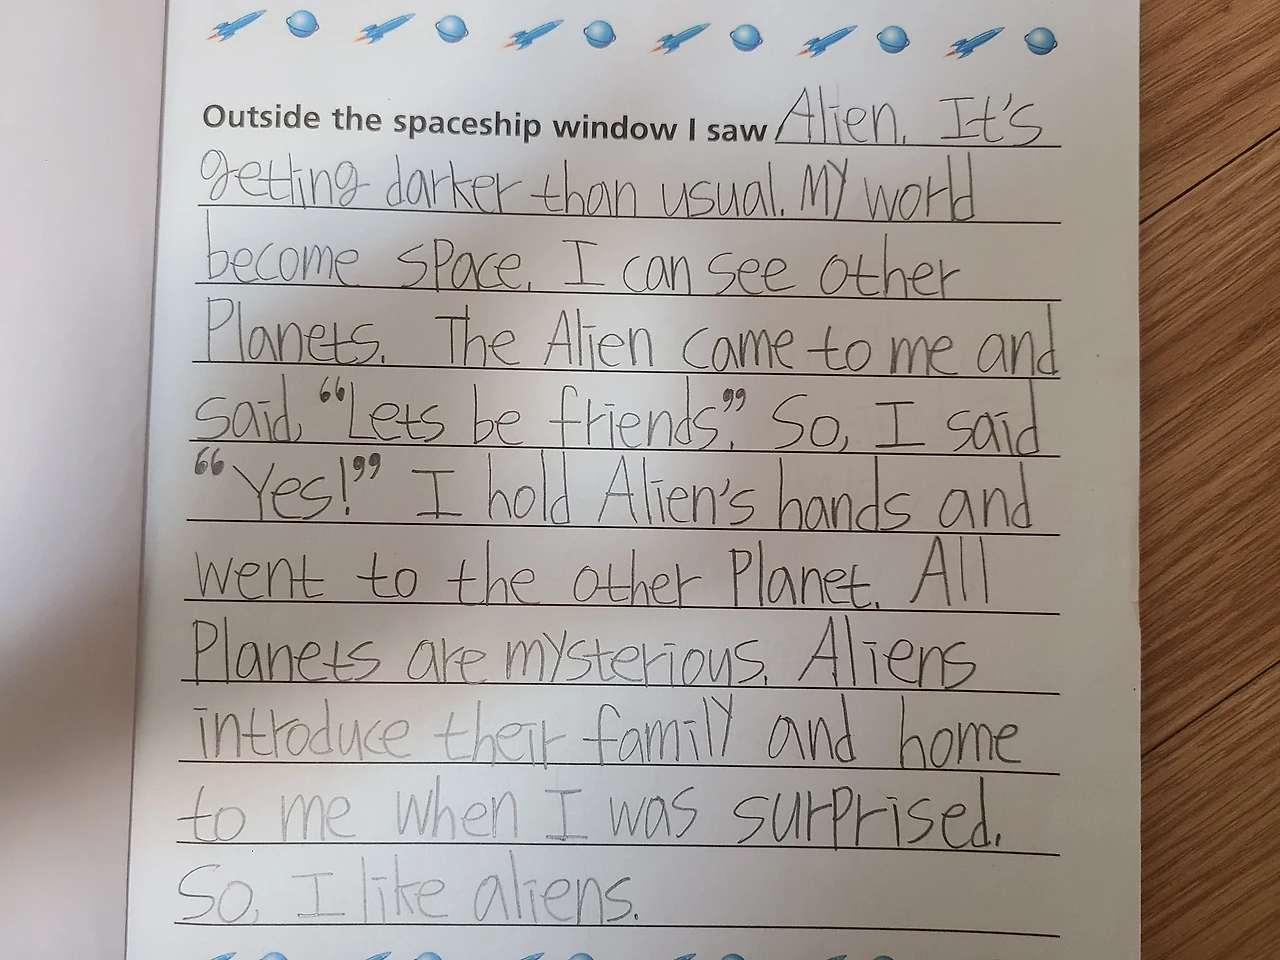 Outside the spaceship window I saw Alien. It's
getting darker than usual. My world
become space. I can see other
Planets. The Alien came to me and
said, “Lets be friends”. So, I said
“Yes!” I hold Alien's hands and
went to the other Planet. All
Planets are mysterious. Aliens
introduce their family and home
to me when I was surprised.
So, I like aliens.